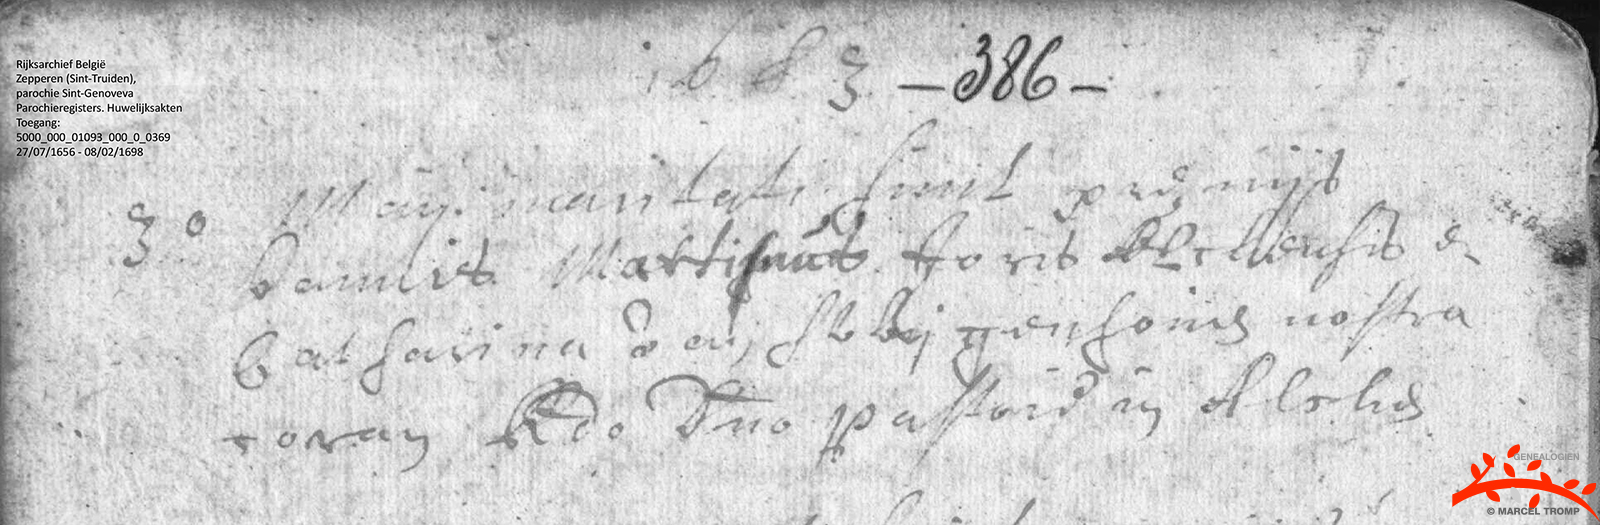 Rijksarchief België
Zepperen (Sint-Truiden),
parochie Sint-Genoveva
Parochieregisters. Huwelijksakten
Toegang:
5000_000_01093_000_0_0369
27/07/1656 - 08/02/1698
1683 -386-
3° Maij maritati sunt
bannis Martinus Joris et
Catharina nostra
coram Rdo Dno pastore in
GENEALOGIEN
© MARCEL TROMP